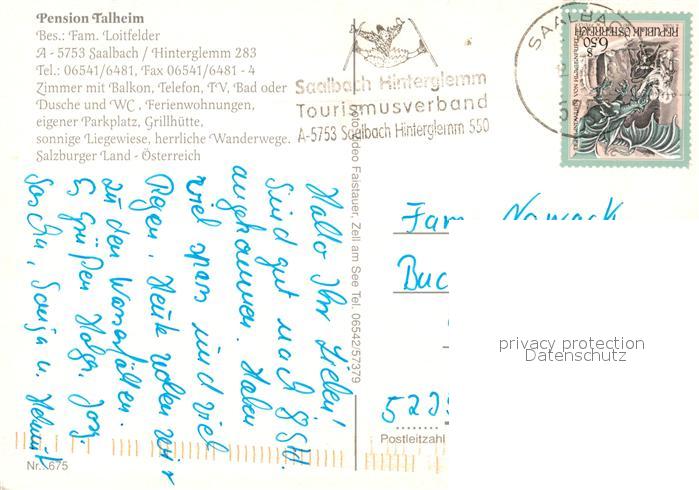 Pension Talheim
Bes.: Fam. Loitfelder
A - 5753 Saalbach / Hinterglemm 283
Tel.: 06541/6481, Fax 06541/6481 - 4
Zimmer mit Balkon, Telefon, TV, Bad oder
Dusche und WC, Ferienwohnungen,
eigener Parkplatz, Grillhütte,
sonnige Liegewiese, herrliche Wanderwege.
Salzburger Land - Österreich
Saalbach Hinterglemm
Tourismusverband
A-5753 Saalbach Hinterglemm 550
SAALBAC
REPUBLIK ÖSTERREICH
S 6.50
Hallo Ihr Lieben!
Sind gut nach
angekommen. Haben
viel spass und viel
Regen. Heute wollen wir
zu den Wasserfällen.
Es grüßen Holger,
Sascha, Sonja u. Helmut
Video Faistauer, Zell am See Tel. 06542/57379
Fam Nowack
Buc
522
Postleitzahl
Nr. 675
privacy protection
Datenschutz